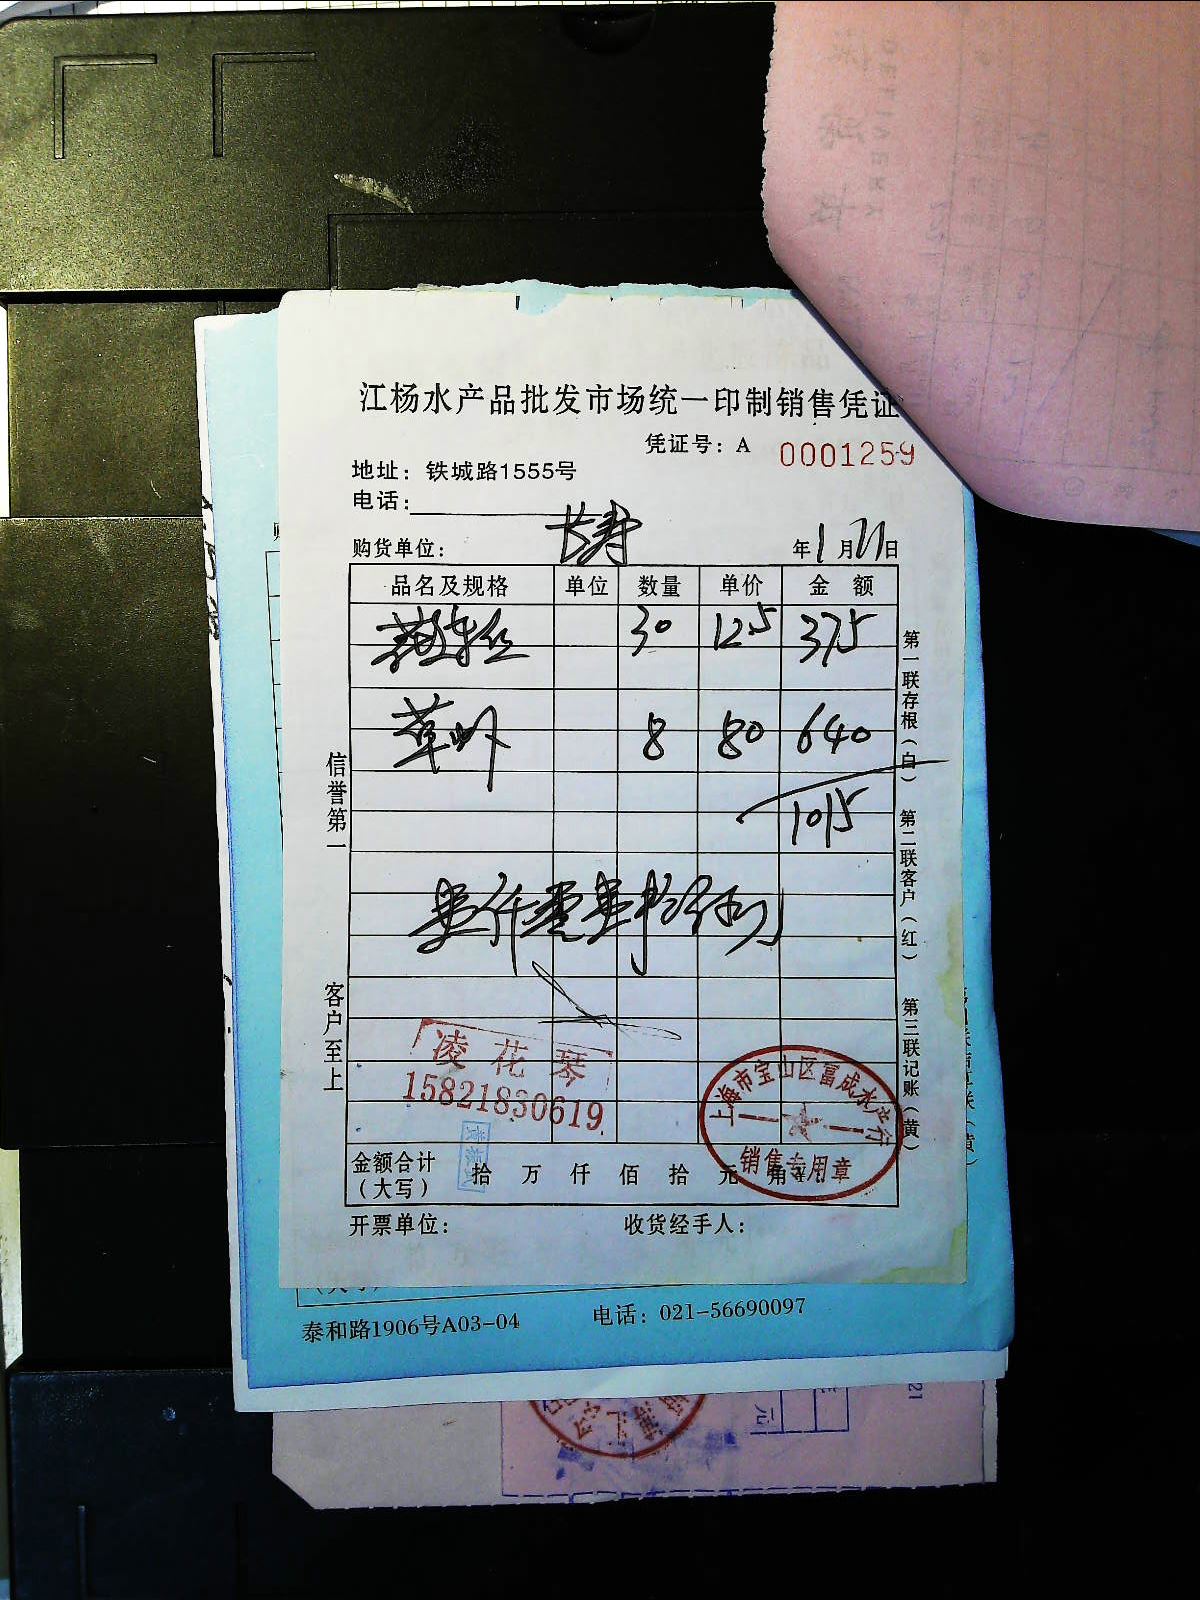 江杨水产品批发市场统一印制销售凭证
凭证号：A 0001259
地址：铁城路1555号
电话：
购货单位： 长寿 年1月21日
品名及规格 单位 数量 单价 金 额
30 12.5 375
草虾 8 80 640
1015
壹仟零壹拾伍元
信誉第一
客户至上
第一联存根（白）
第二联客户（红）
第三联记账（黄）
凌花琴
15821830619
上海市宝山区富成水产行
销售专用章
金额合计
（大写） 拾 万 仟 佰 拾 元 角
开票单位： 收货经手人：
泰和路1906号A03-04 电话：021-56690097